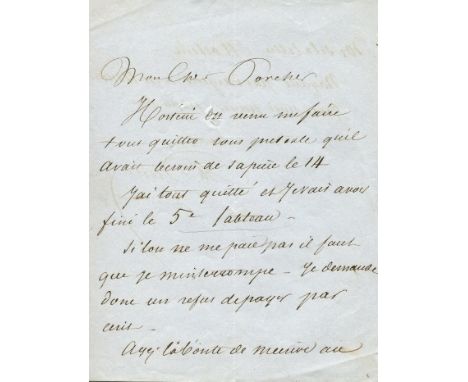 Mon Cher Porcher
Hostein est venu me faire
tous quitter sous pretexte quil
avait besoin de sa pièce le 14
J'ai tout quitté et je vais avoir
fini le 5e tableau -
Si l'on ne me paie pas il faut
que je m'interrompe - Je demande
donc un refus de payer par
ecrit -
Ayez la bonté de m'ecrire au